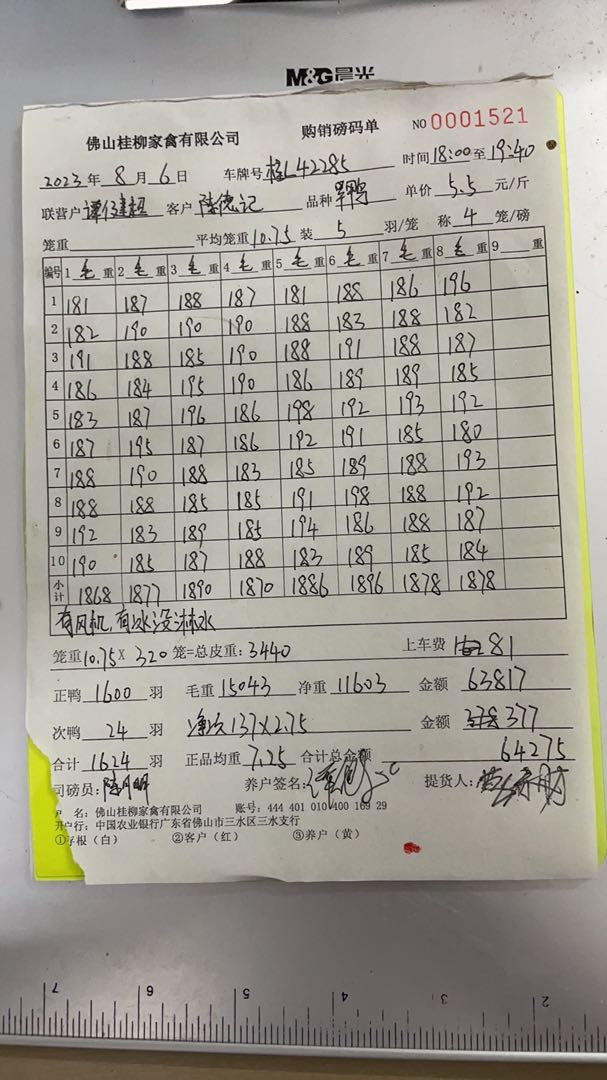 M&G晨光
佛山桂柳家禽有限公司 购销磅码单 NO 0001521
2023年8月6日 车牌号 桂L42285 时间18:00至19:40
联营户 客户 陈德记 品种 单价 5.5 元/斤
笼重 平均笼重10.75 装 5 羽/笼 称 4 笼/磅
编号 1毛重 2毛重 3毛重 4毛重 5毛重 6毛重 7毛重 8毛重 9 重
1 181 187 188 187 181 188 186 196
2 182 190 190 190 188 183 188 182
3 191 188 185 190 188 191 188 187
4 186 184 195 190 186 189 189 185
5 183 187 196 186 198 192 193 192
6 187 195 187 186 192 191 185 180
7 188 190 188 183 185 189 188 193
8 188 188 185 185 191 198 188 192
9 192 183 189 185 194 186 188 187
10 190 185 187 188 183 189 185 184
小计 1868 1877 1890 1870 1886 1896 1878 1878
有风机,有冰没淋水
笼重10.75×320笼=总皮重:3440 上车费 81
正鸭 1600 羽 毛重15043 净重11603 金额 63817
次鸭 24 羽 净次137×2.75 金额 377
合计 1624 羽 正品均重 7.25 合计总金额 64275
司磅员: 养户签名: 提货人:
户 名:佛山桂柳家禽有限公司 账号:444 401 010 400 169 29
开户行:中国农业银行广东省佛山市三水区三水支行
①存根(白) ②客户(红) ③养户(黄)
7 6 5 4 3 2